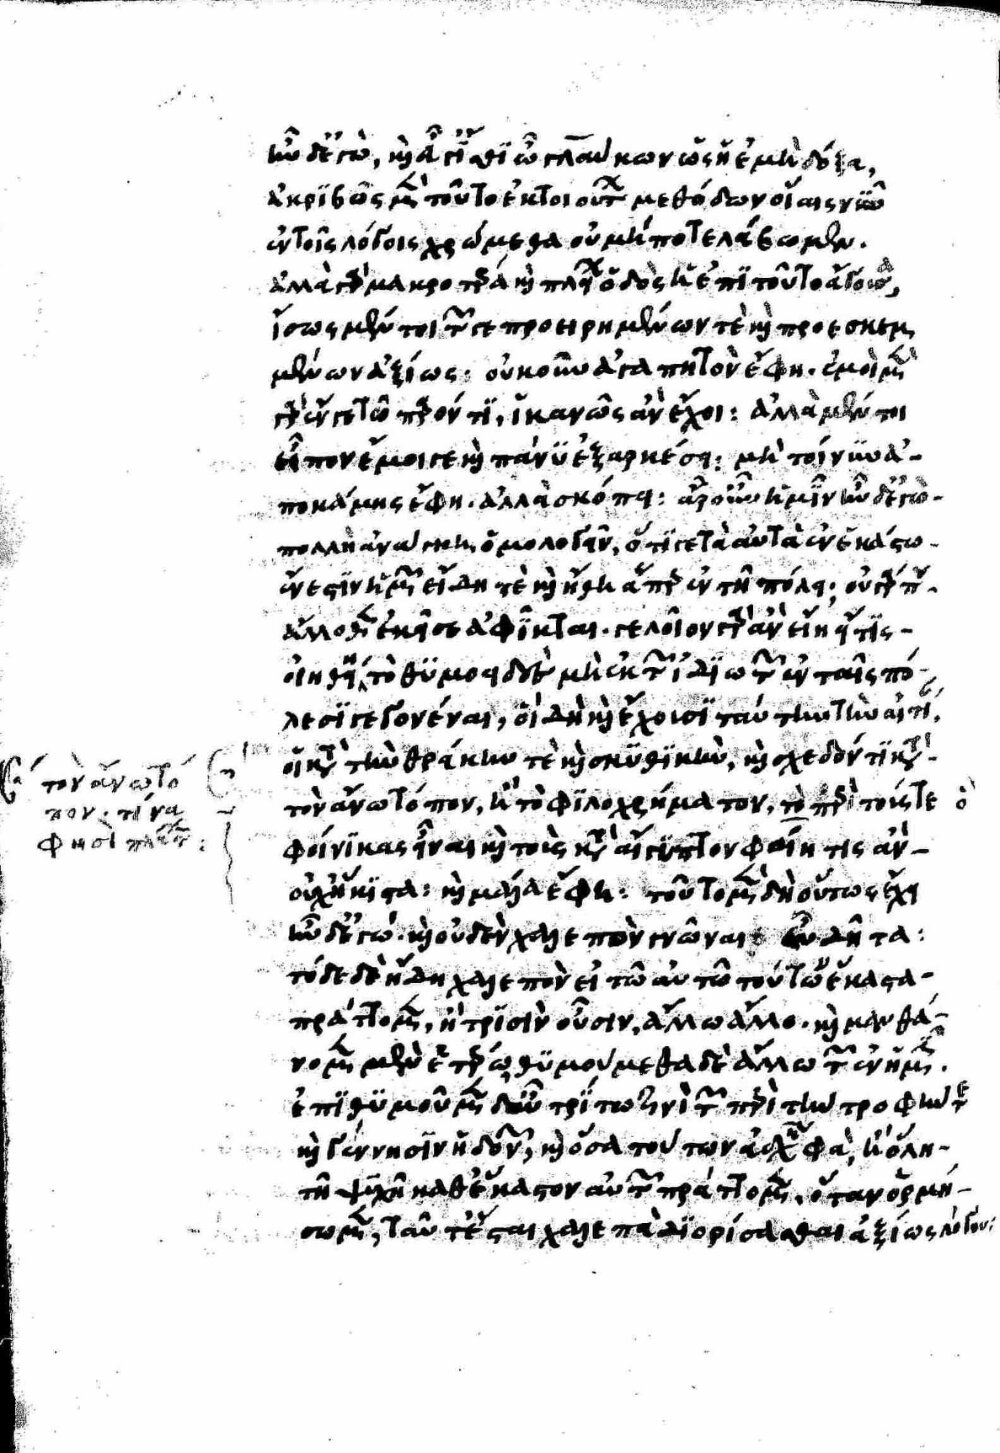 ἦν δ' ἐγώ, καὶ εὖ γ' ἴσθι ὦ γλαύκων ὡς ἡ ἐμὴ δόξα,
ἀκριβῶς μὲν τοῦτο ἐκ τοιούτων μεθόδων οἵαις νῦν
ἐν τοῖς λόγοις χρώμεθα οὐ μήποτε λάβωμεν.
ἀλλὰ γὰρ μακροτέρα καὶ πλείων ὁδὸς ἡ ἐπὶ τοῦτο ἄγουσα,
ἴσως μέντοι τῶν γε προειρημένων τὲ καὶ προεσκεμ
μένων ἀξίως: οὐκοῦν ἀγαπητὸν ἔφη. ἐμοὶ μὲν
γὰρ ἔν γε τῷ παρόντι, ἱκανῶς ἂν ἔχοι: ἀλλὰ μέντοι
εἶπον ἔμοιγε καὶ πάνυ ἐξαρκέσει: μὴ τοίνυν ἀ-
ποκάμῃς ἔφη. ἀλλὰ σκόπει: ἆρ' οὖν ἡμῖν ἦν δ' ἐγὼ.
πολλὴ ἀνάγκη, ὁμολογεῖν, ὅτι γε τὰ αὐτὰ ἐν ἑκάστῳ
ἔνεστιν ἡμῶν εἴδη τὲ καὶ ἤθη ἅπερ ἐν τῇ πόλει; οὐ γάρ που
ἄλλοθεν ἐκεῖσε ἀφῖκται. γελοῖον γὰρ ἂν εἴη εἴ τις
οἰηθείη, τὸ θυμοειδὲς μὴ ἐκ τῶν ἰδιωτῶν ἐν ταῖς πό-
λεσι γεγονέναι, οἳ δὴ καὶ ἔχουσι ταύτην τὴν αἰτίαν.
οἷον κατὰ τὴν θράκην τὲ καὶ σκυθικὴν, καὶ σχεδόν τι κατὰ
τὸν ἄνω τόπον, ἢ τὸ φιλοχρήματον, τὸ περὶ τούς τε ὃ
φοίνικας εἶναι καὶ τοὺς κατὰ αἴγυπτον φαίη τις ἂν
οὐχ ἥκιστα: καὶ μάλα ἔφη: τοῦτο μὲν δὴ οὕτως ἔχει
ἦν δ' ἐγώ. καὶ οὐδὲν χαλεπὸν γνῶναι: οὐ δῆτα:
τόδε δὲ ἤδη χαλεπὸν εἰ τῷ αὐτῷ τούτῳ ἕκαστα
πράττομεν, ἢ τρισὶν οὖσιν, ἄλλο ἄλλῳ. καὶ μανθά-
νομεν μὲν ἑτέρῳ, θυμούμεθα δὲ ἄλλῳ τῶν ἐν ἡμῖν.
ἐπιθυμοῦμεν δ' αὖ τρίτῳ τινὶ τῶν περὶ τὴν τροφήν τε
καὶ γέννησιν ἡδονῶν, καὶ ὅσα τούτων ἀδελφὰ, ἢ ὅλη
τῇ ψυχῇ καθ' ἕκαστον αὐτῶν πράττομεν, ὅταν ὁρμή-
σωμεν, ταῦτ' ἔσται χαλεπὰ διορίσασθαι ἀξίως λόγου:
τὸν ἄνω τό
πον. τίνα
φησὶ πλάτων: